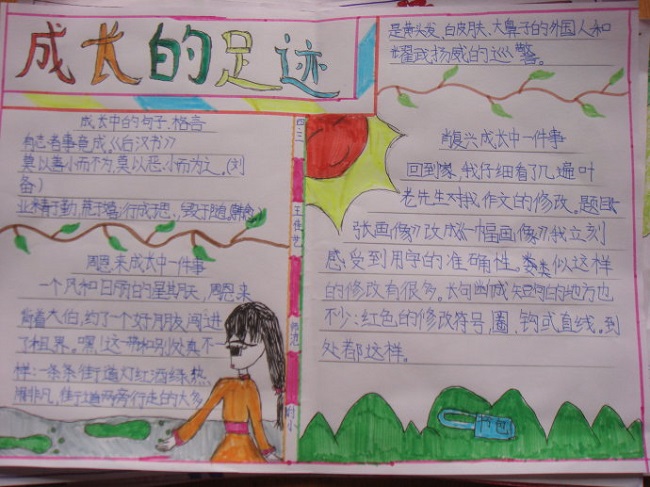 成长的足迹
成长中的句子、格言
有志者事竟成。《后汉书》
莫以善小而不为,莫以恶小而为之。(刘
备)
业精于勤,荒于嬉;行成于思,毁于随。(韩愈)
周恩来成长中一件事
一个风和日丽的星期天,周恩来
背着大伯,约了一个好朋友闯进
了租界。嘿!这一带和别处真不
样:一条条街道灯红酒绿,热
闹非凡,街道两旁行走的大多
四二
王佳艺
师范
附小
是黄头发、白皮肤、大鼻子的外国人和
耀武扬威的巡警。
肖复兴成长中一件事
回到家,我仔细看了几遍叶
老先生对我作文的修改。题目
张画像》改成《一幅画像》,我立刻
感受到用字的准确性。类似这样
的修改有很多。长句断成短句的地方也
不少:红色的修改符号,圈、钩或直线。到
处都这样。
书包